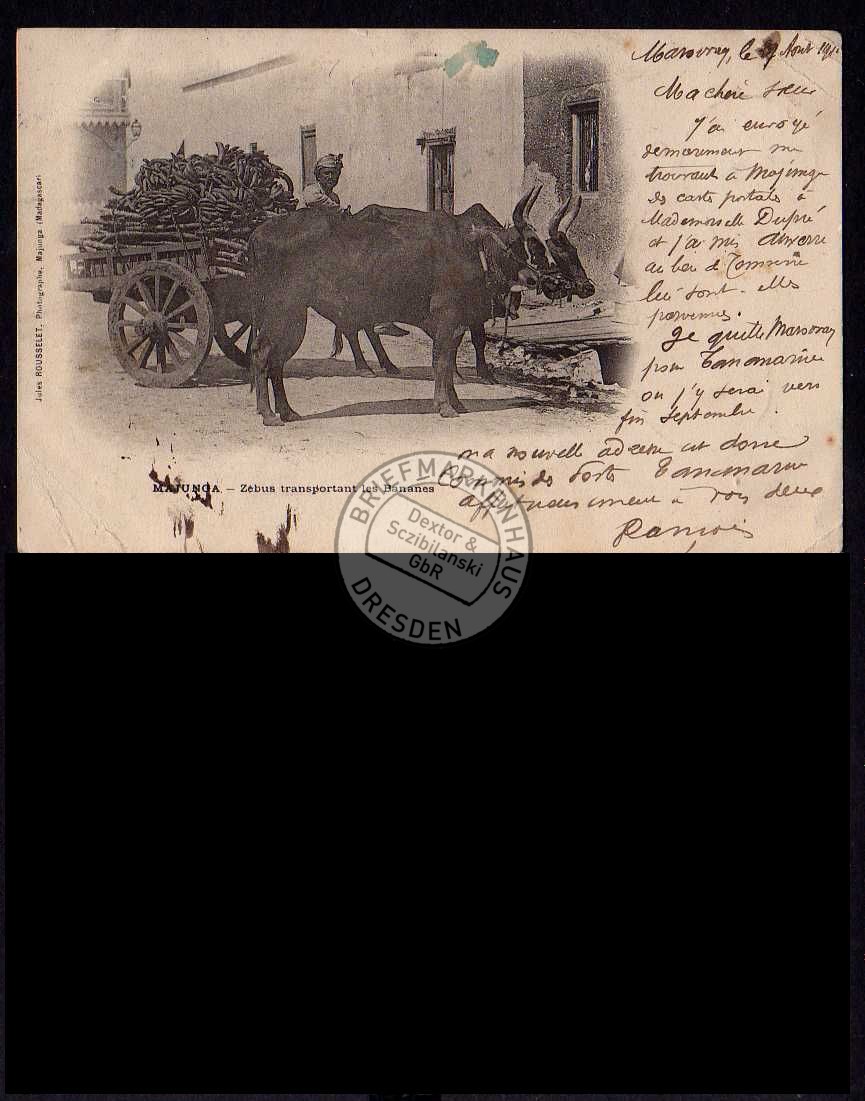 le Août
Ma chère sœur
j'ai envoyé
dernièrement me
trouvant à Majunga
des carte postale à
Mademoiselle Dupré
et j'ai mis
au lieu de
lui sont-elles
parvenues.
Je quitte
pour Tananarive
ou j'y serai vers
fin Septembre.
ma nouvelle adresse est donc
Commis des Postes Tananarive
affectueusement à vous deux
MAJUNGA – Zébus transportant les Bananes
Jules ROUSSELET, Photographe, Majunga (Madagascar)
BRIEFMARKENHAUS
Dextor &
Sczibilanski
GbR
DRESDEN